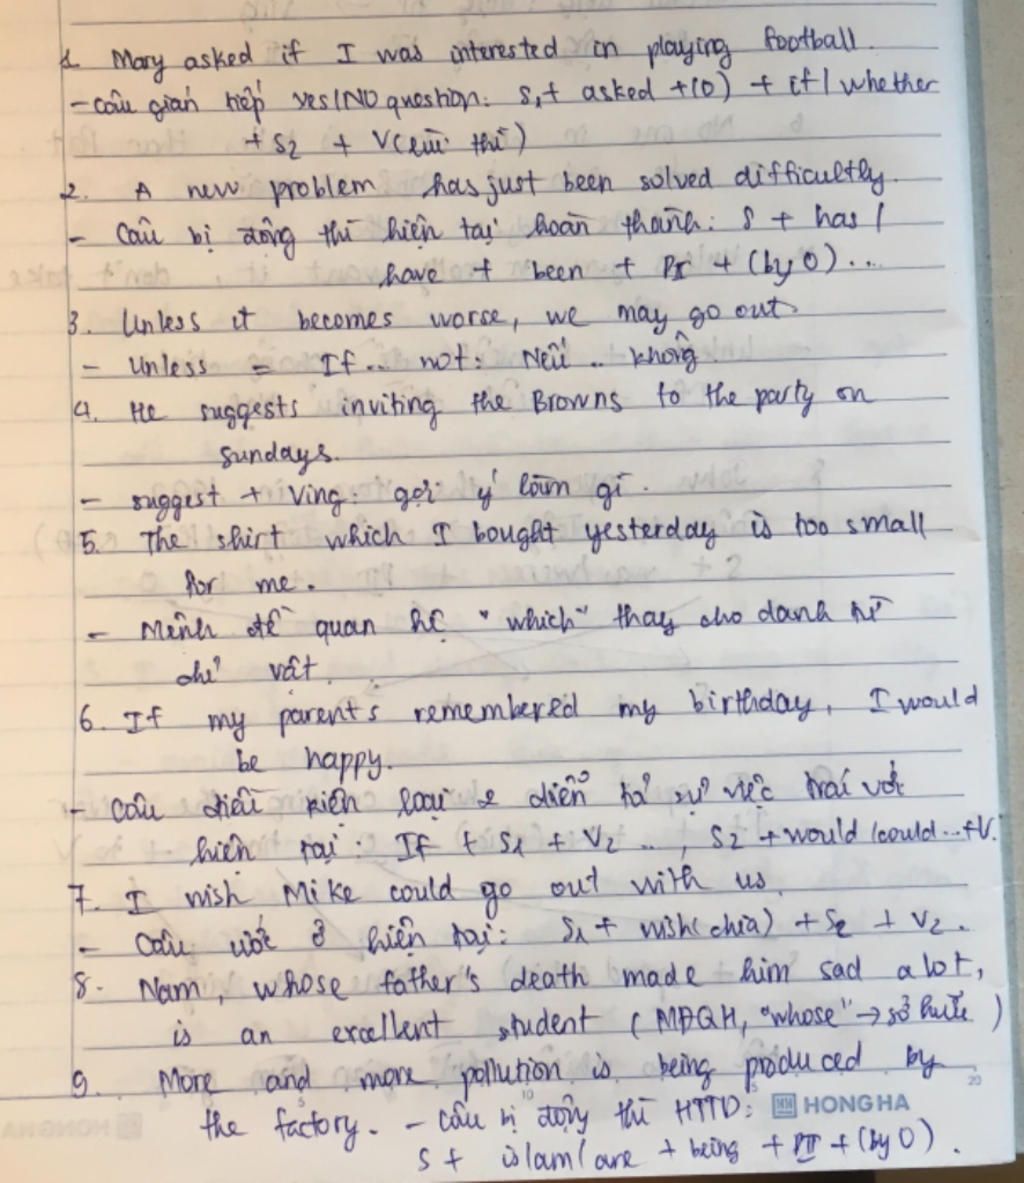 1. Mary asked if I was interested in playing football.
- Câu gián tiếp Yes/NO question: S1+ asked +(O) + if / whether
+ S2 + V(lùi thì)
2. A new problem has just been solved difficultly.
- Câu bị động thì hiện tại hoàn thành: S + has /
have + been + PII + (by O)...
3. Unless it becomes worse, we may go out.
- Unless = If... not: Nếu .. không
4. He suggests inviting the Browns to the party on
Sundays.
- suggest + Ving: gợi ý làm gì.
5. The shirt which I bought yesterday is too small
for me.
- Mệnh đề quan hệ "which" thay cho danh từ
chỉ vật.
6. If my parents remembered my birthday, I would
be happy.
- Câu điều kiện loại 2 diễn tả sự việc trái với
hiện tại: If + S1 + V2 ..., S2 + would /could...+V.
7. I wish Mike could go out with us.
- Câu ước ở hiện tại: S1 + wish(chia) + S2 + V2.
8. Nam, whose father's death made him sad a lot,
is an excellent student (MĐQH, "whose" → sở hữu)
9. More and more pollution is being produced by
the factory. - Câu bị động thì HTTD: HONG HA
S + is/am/are + being + PII + (by O).